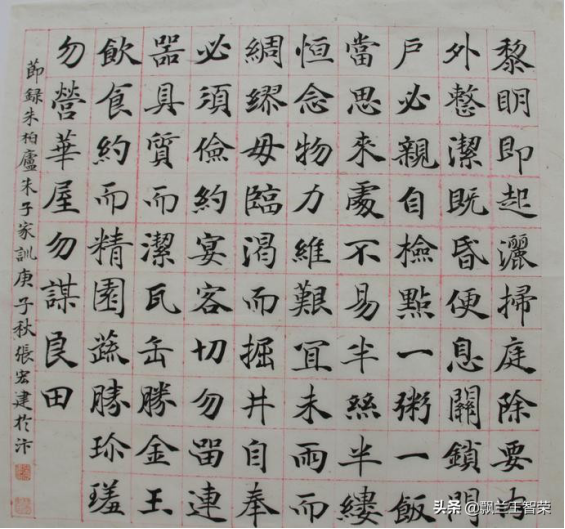 黎眀即起灑掃庭除要
外整潔既昏便息關鎖門
户必親自檢點一粥一飯
當思來處不易半絲半縷
恒念物力維艱冝未雨而
綢繆毋臨渴而掘井自奉
必須儉約宴客切勿留連
器具質而潔瓦缶勝金玉
飲食約而精園蔬勝珎饈
勿營華屋勿謀良田
節録朱柏廬朱子家訓庚子秋張宏建於汴
头条 @飘兰王智荣